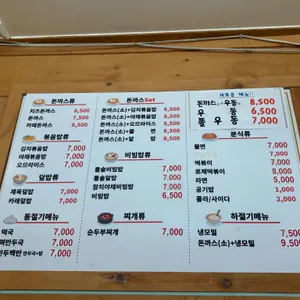 돈까스류
치즈돈까스 8,500
돈까스 7,500
카레돈까스 8,500
볶음밥류
김치볶음밥 7,000
야채볶음밥 7,000
오므라이스 7,000
덮밥류
제육덮밥 7,000
카레덮밥 7,000
동절기메뉴
떡국 7,000
떡만두국 7,000
만두백반 7,000
돈까스Set
돈까스(소)+김치볶음밥 8,500
돈까스(소)+야채볶음밥 8,500
돈까스(소)+오므라이스 8,500
돈까스(소)+쫄 면 8,500
돈까스(소)+알 밥 8,500
비빔밥류
돌솥비빔밥 7,000
돌솥알밥 7,000
참치야채비빔밥 7,000
비빔밥 6,500
찌개류
순두부찌개 7,000
새로운 메뉴!!
돈까스+우동 8,500
우 동 6,500
쫄 우 동 7,000
분식류
쫄면
떡볶이
로제떡볶이
라면
공기밥
콜라/사이다
하절기메뉴
냉모밀 7,500
돈까스(소)+냉모밀 9,500